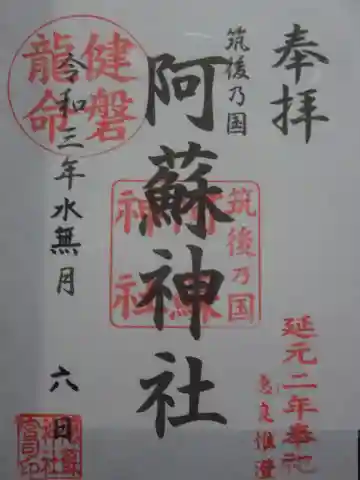 奉拝
筑後乃国
阿蘇神社
健磐
龍命
令和三年水無月 六日
筑後乃国
阿蘇
神社
延元二年奉祀
恵良惟澄